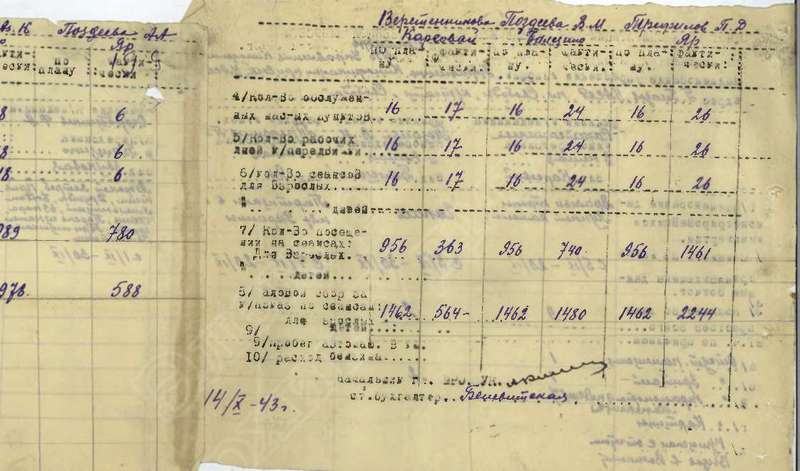 Поздеева А.А
Яр
факти- по факти-
чески: плану чески
6
6
6
780
588
Веретенникова Поздеева В.М Трефилов П.Д
Карсовай Балезино Яр
по пла- факти- по пла- факти- по пла- факти-
ну. чески. ну. чески. ну. чески:
4/Кол-во обслужен-
ных нас-ых пунктов 16 17 16 24 16 26
5/Кол-во рабочих
дней к/передвижки 16 17 16 24 16 26
6/кол-во сеансов
для взрослых 16 17 16 24 16 26
" детей
7/ Кол-во посеще-
ний на сеансах:
Для взрослых. 956 363 956 740 956 1461
" детей
8/Валовой сбор за
к/показ по сеансам: 1462 564- 1462 1480 1462 2244
для взрослых
9/ детей
9/пробег автомаш. в км.
10/ расход бензина
начальник
ст.бухгалтер
14/X-43г.